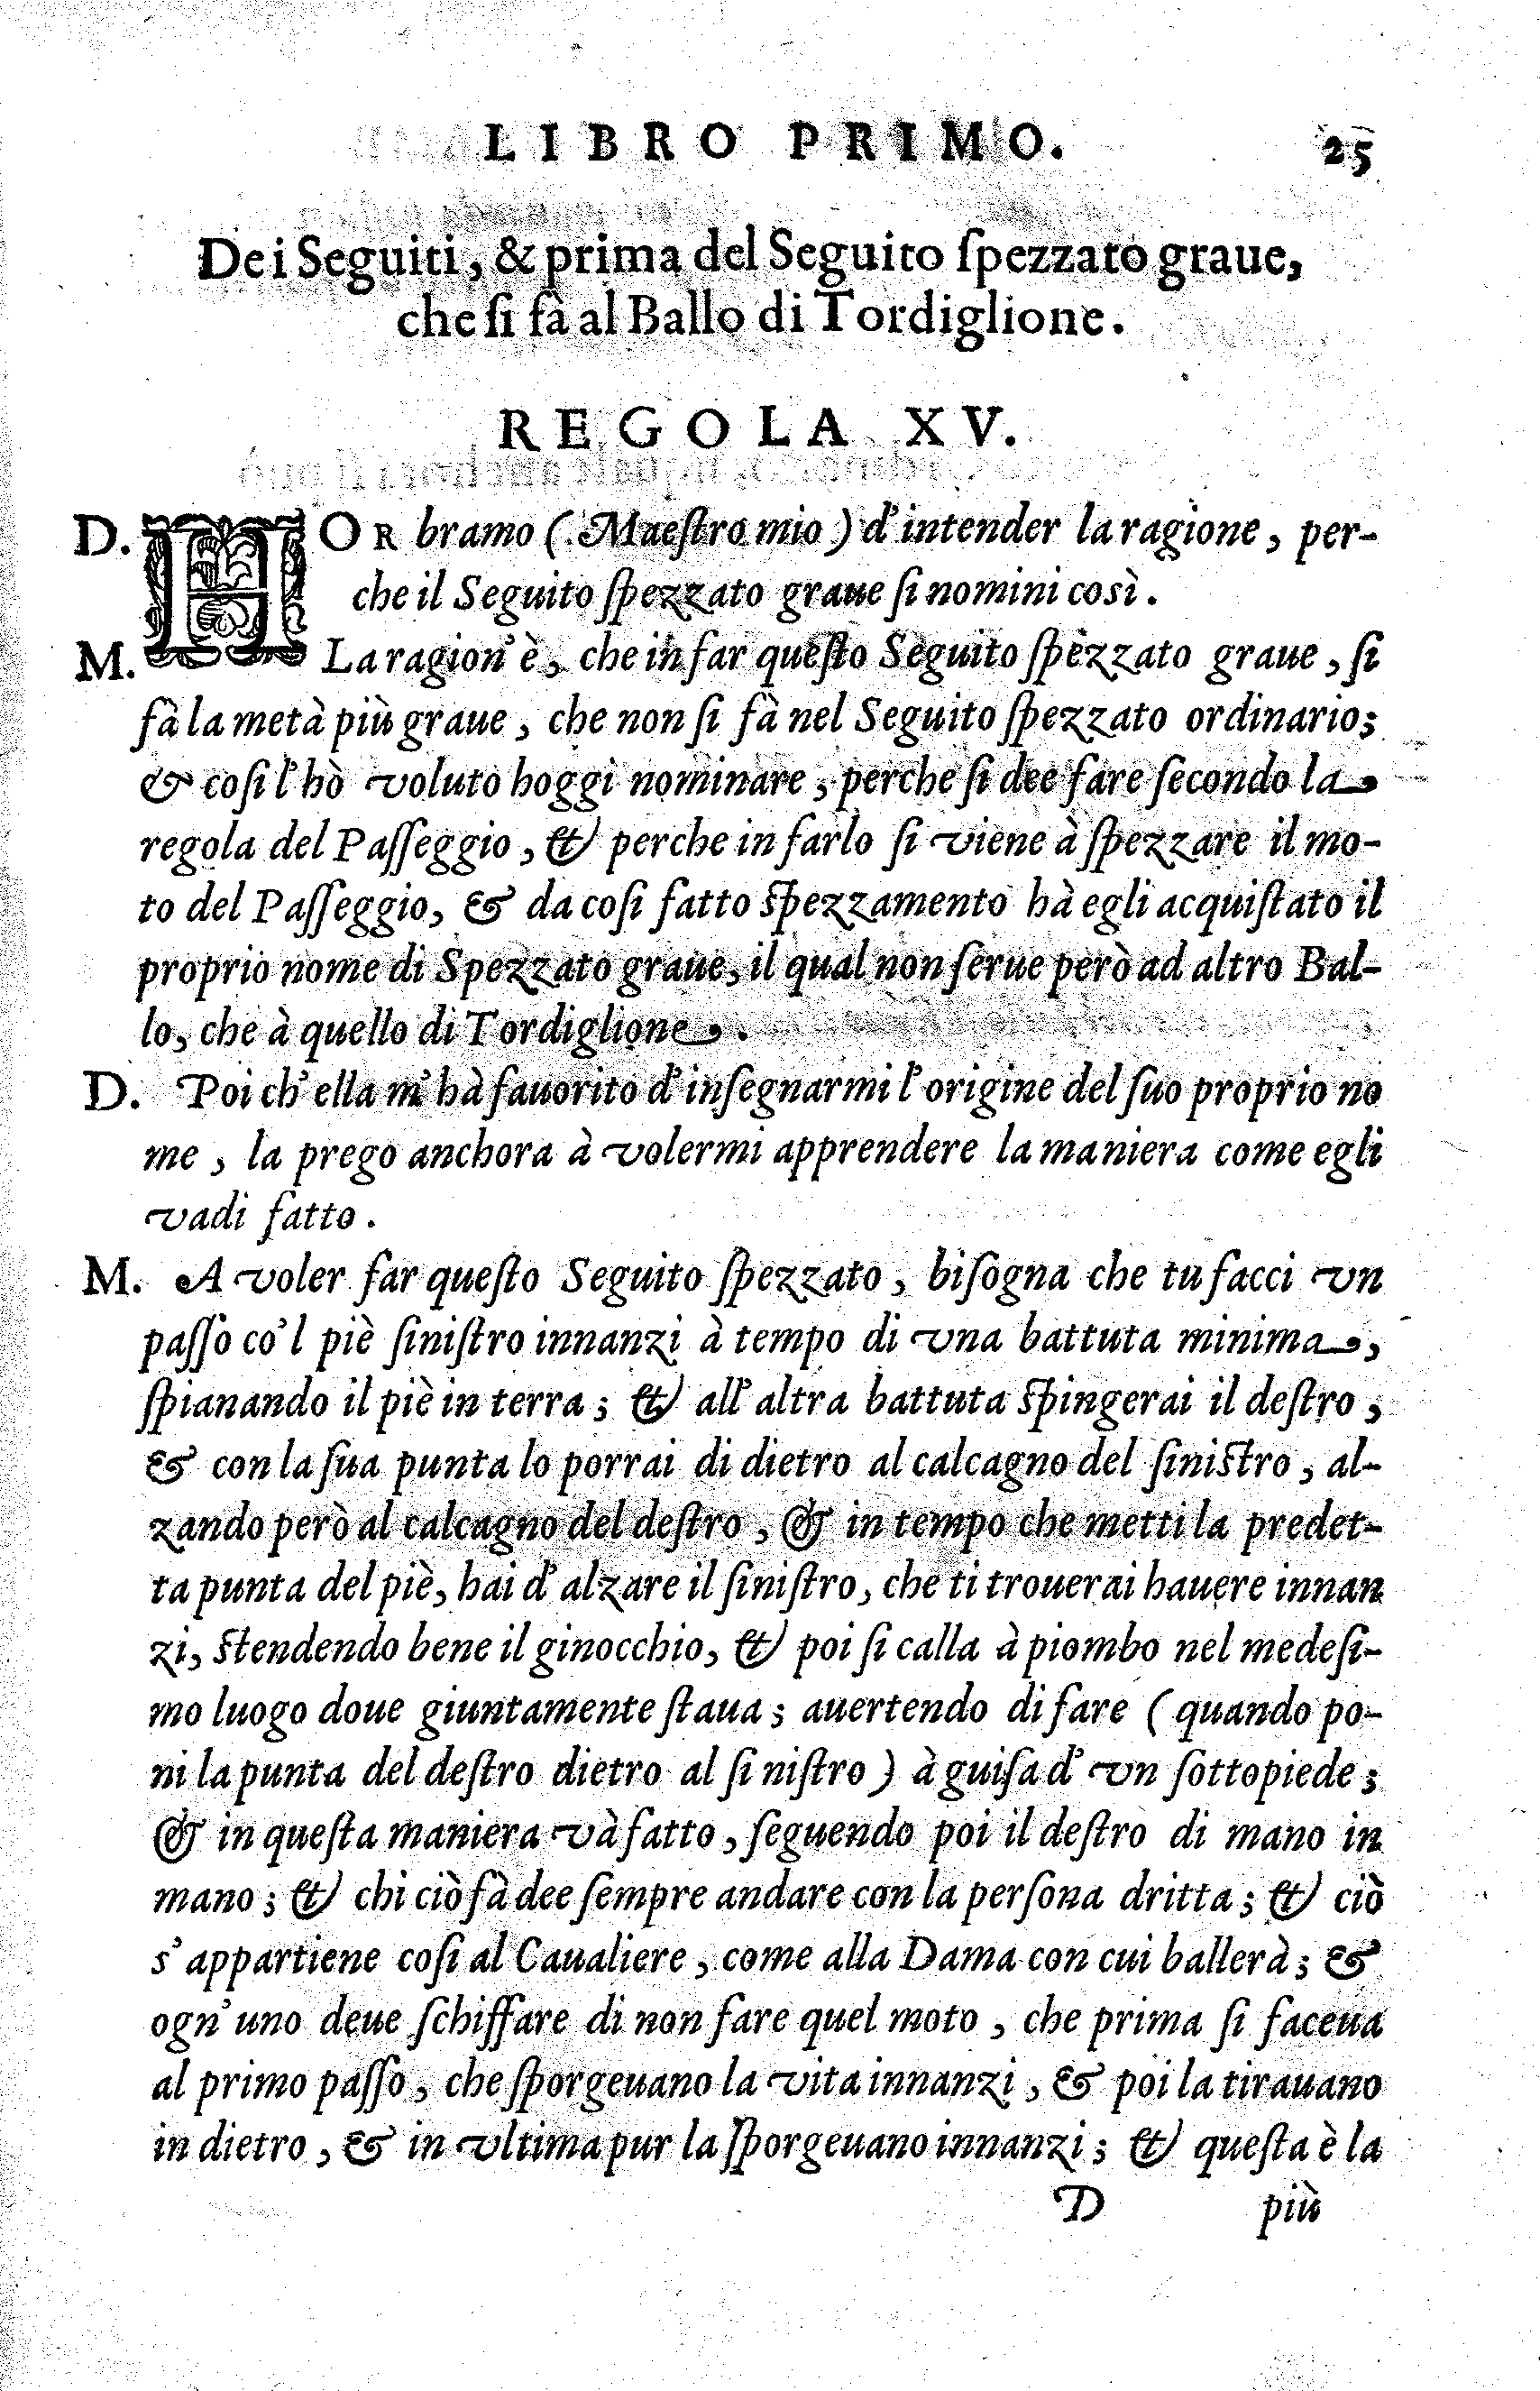 LIBRO PRIMO. 25
Dei Seguiti, & prima del Seguito ſpezzato graue,
che ſi fà al Ballo di Tordiglione.
REGOLA XV.
D. HOR bramo (Maeſtro mio) d'intender la ragione, per-
che il Seguito ſpezzato graue ſi nomini così.
M. La ragion' è, che in far queſto Seguito ſpezzato graue, ſi
fà la metà più graue, che non ſi fà nel Seguito ſpezzato ordinario;
& coſi l'hò voluto hoggi nominare, perche ſi dee fare ſecondo la
regola del Paſſeggio, & perche in farlo ſi viene à ſpezzare il mo-
to del Paſſeggio, & da coſi fatto ſpezzamento hà egli acquiſtato il
proprio nome di Spezzato graue, il qual non ſerue però ad altro Bal-
lo, che à quello di Tordiglione.
D. Poi ch'ella m'hà fauorito d'inſegnarmi l'origine del ſuo proprio no
me, la prego anchora à volermi apprendere la maniera come egli
vadi fatto.
M. A voler far queſto Seguito ſpezzato, biſogna che tu facci vn
paſſo co'l piè ſiniſtro innanzi à tempo di vna battuta minima,
ſpianando il piè in terra; & all'altra battuta ſpingerai il deſtro,
& con la ſua punta lo porrai di dietro al calcagno del ſiniſtro, al-
zando però al calcagno del deſtro, & in tempo che metti la predet-
ta punta del piè, hai d'alzare il ſiniſtro, che ti trouerai hauere innan
zi, ſtendendo bene il ginocchio, & poi ſi calla à piombo nel medeſi-
mo luogo doue giuntamente ſtaua; auertendo di fare (quando po-
ni la punta del deſtro dietro al ſiniſtro) à guiſa d'vn ſottopiede;
& in queſta maniera và fatto, ſeguendo poi il deſtro di mano in
mano; & chi ciò fà dee ſempre andare con la perſona dritta; & ciò
s'appartiene coſi al Caualiere, come alla Dama con cui ballerà; &
ogn'uno deue ſchiffare di non fare quel moto, che prima ſi faceua
al primo paſſo, che ſporgeuano la vita innanzi, & poi la tirauano
in dietro, & in vltima pur la ſporgeuano innanzi; & queſta è la
D più